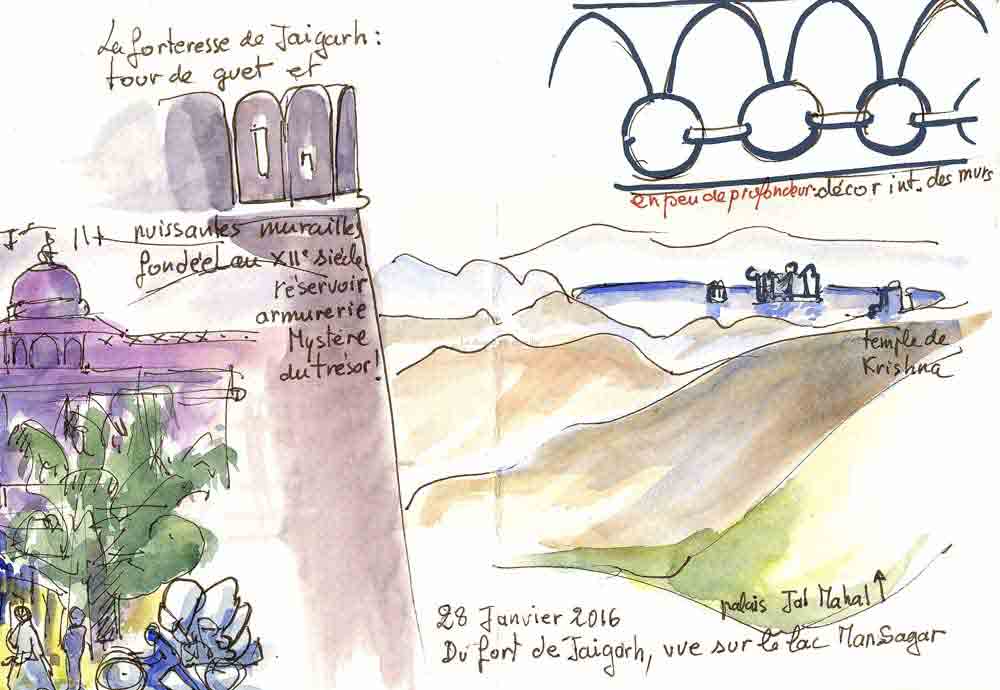 La forteresse de Jaigarh :
tour de guet et
puissantes murailles
fondée au XIIe siècle
réservoir
armurerie
Mystère
du trésor !
en peu de profondeur : décor int. des murs
temple de
Krishna
palais Jal Mahal ↑
28 Janvier 2016
Du fort de Jaigarh, vue sur le lac ManSagar